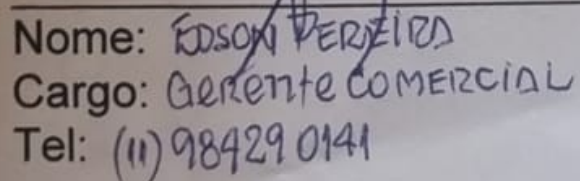 Nome: EDSON PEREIRA
Cargo: Gerente COMERCIAL
Tel: (11) 98429 0141